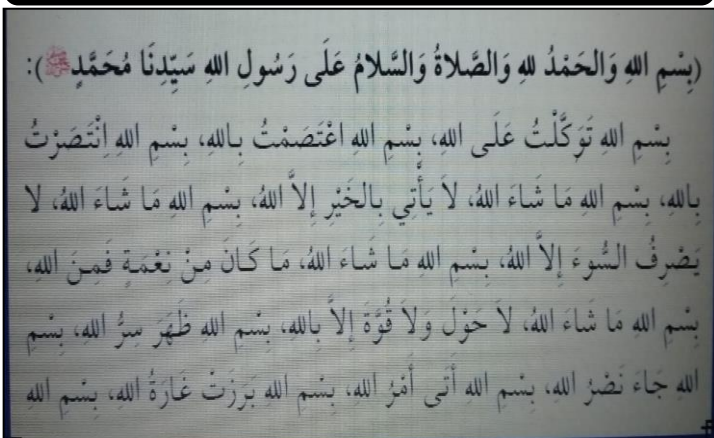 (بِسْمِ اللهِ وَالحَمْدُ للهِ وَالصَّلاةُ وَالسَّلامُ عَلَى رَسُولِ اللهِ سَيِّدِنَا مُحَمَّدٍ ﷺ):
بِسْمِ اللهِ تَوَكَّلْتُ عَلَى اللهِ، بِسْمِ اللهِ اعْتَصَمْتُ بِاللهِ، بِسْمِ اللهِ اِنْتَصَرْتُ
بِاللهِ، بِسْمِ اللهِ مَا شَاءَ اللهُ، لاَ يَأْتِي بِالخَيْرِ إِلاَّ اللهُ، بِسْمِ اللهِ مَا شَاءَ اللهُ، لا
يَصْرِفُ السُّوءَ إِلاَّ اللهُ، بِسْمِ اللهِ مَا شَاءَ اللهُ، مَا كَانَ مِنْ نِعْمَةٍ فَمِنَ اللهِ،
بِسْمِ اللهِ مَا شَاءَ اللهُ، لاَ حَوْلَ وَلاَ قُوَّةَ إِلاَّ بِاللهِ، بِسْمِ اللهِ ظَهَرَ سِرُّ اللهِ، بِسْمِ
اللهِ جَاءَ نَصْرُ اللهِ، بِسْمِ اللهِ أَتَى أَمْرُ اللهِ، بِسْمِ اللهِ بَرَزَتْ غَارَةُ اللهِ، بِسْمِ اللهِ